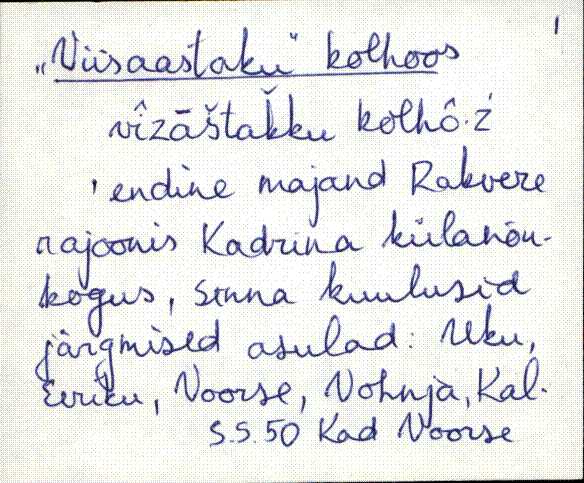 1
„Viisaastaku" kolhoos
vîzāštak̆ku kolhô·ź
'endine majand Rakvere
rajoonis Kadrina külanõu-
kogus, sinna kuulusid
järgmised asulad: Uku,
Eeriku, Voorse, Vohnja, Kal-
S.S.50 Kad Voorse